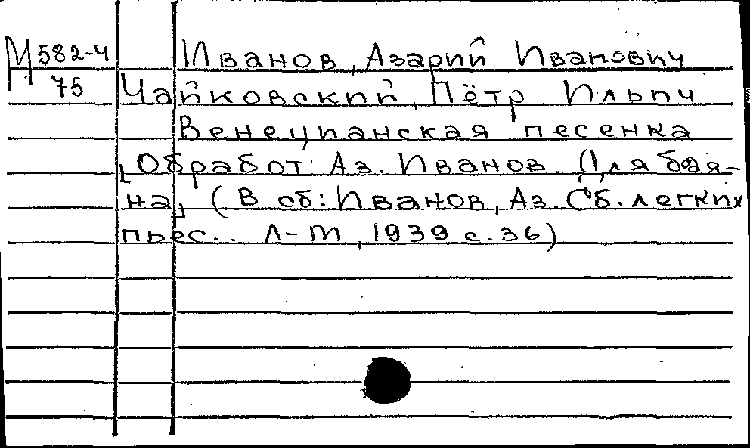 М 582-4 Иванов, Азарий Иванович
75 Чайковский, Пётр Ильич
Венецианская песенка
[Обработ. Аз. Иванов. Для бая-
на] (В сб.: Иванов, Аз. Сб. легких
пьес.. Л-М, 1939 с. 36)